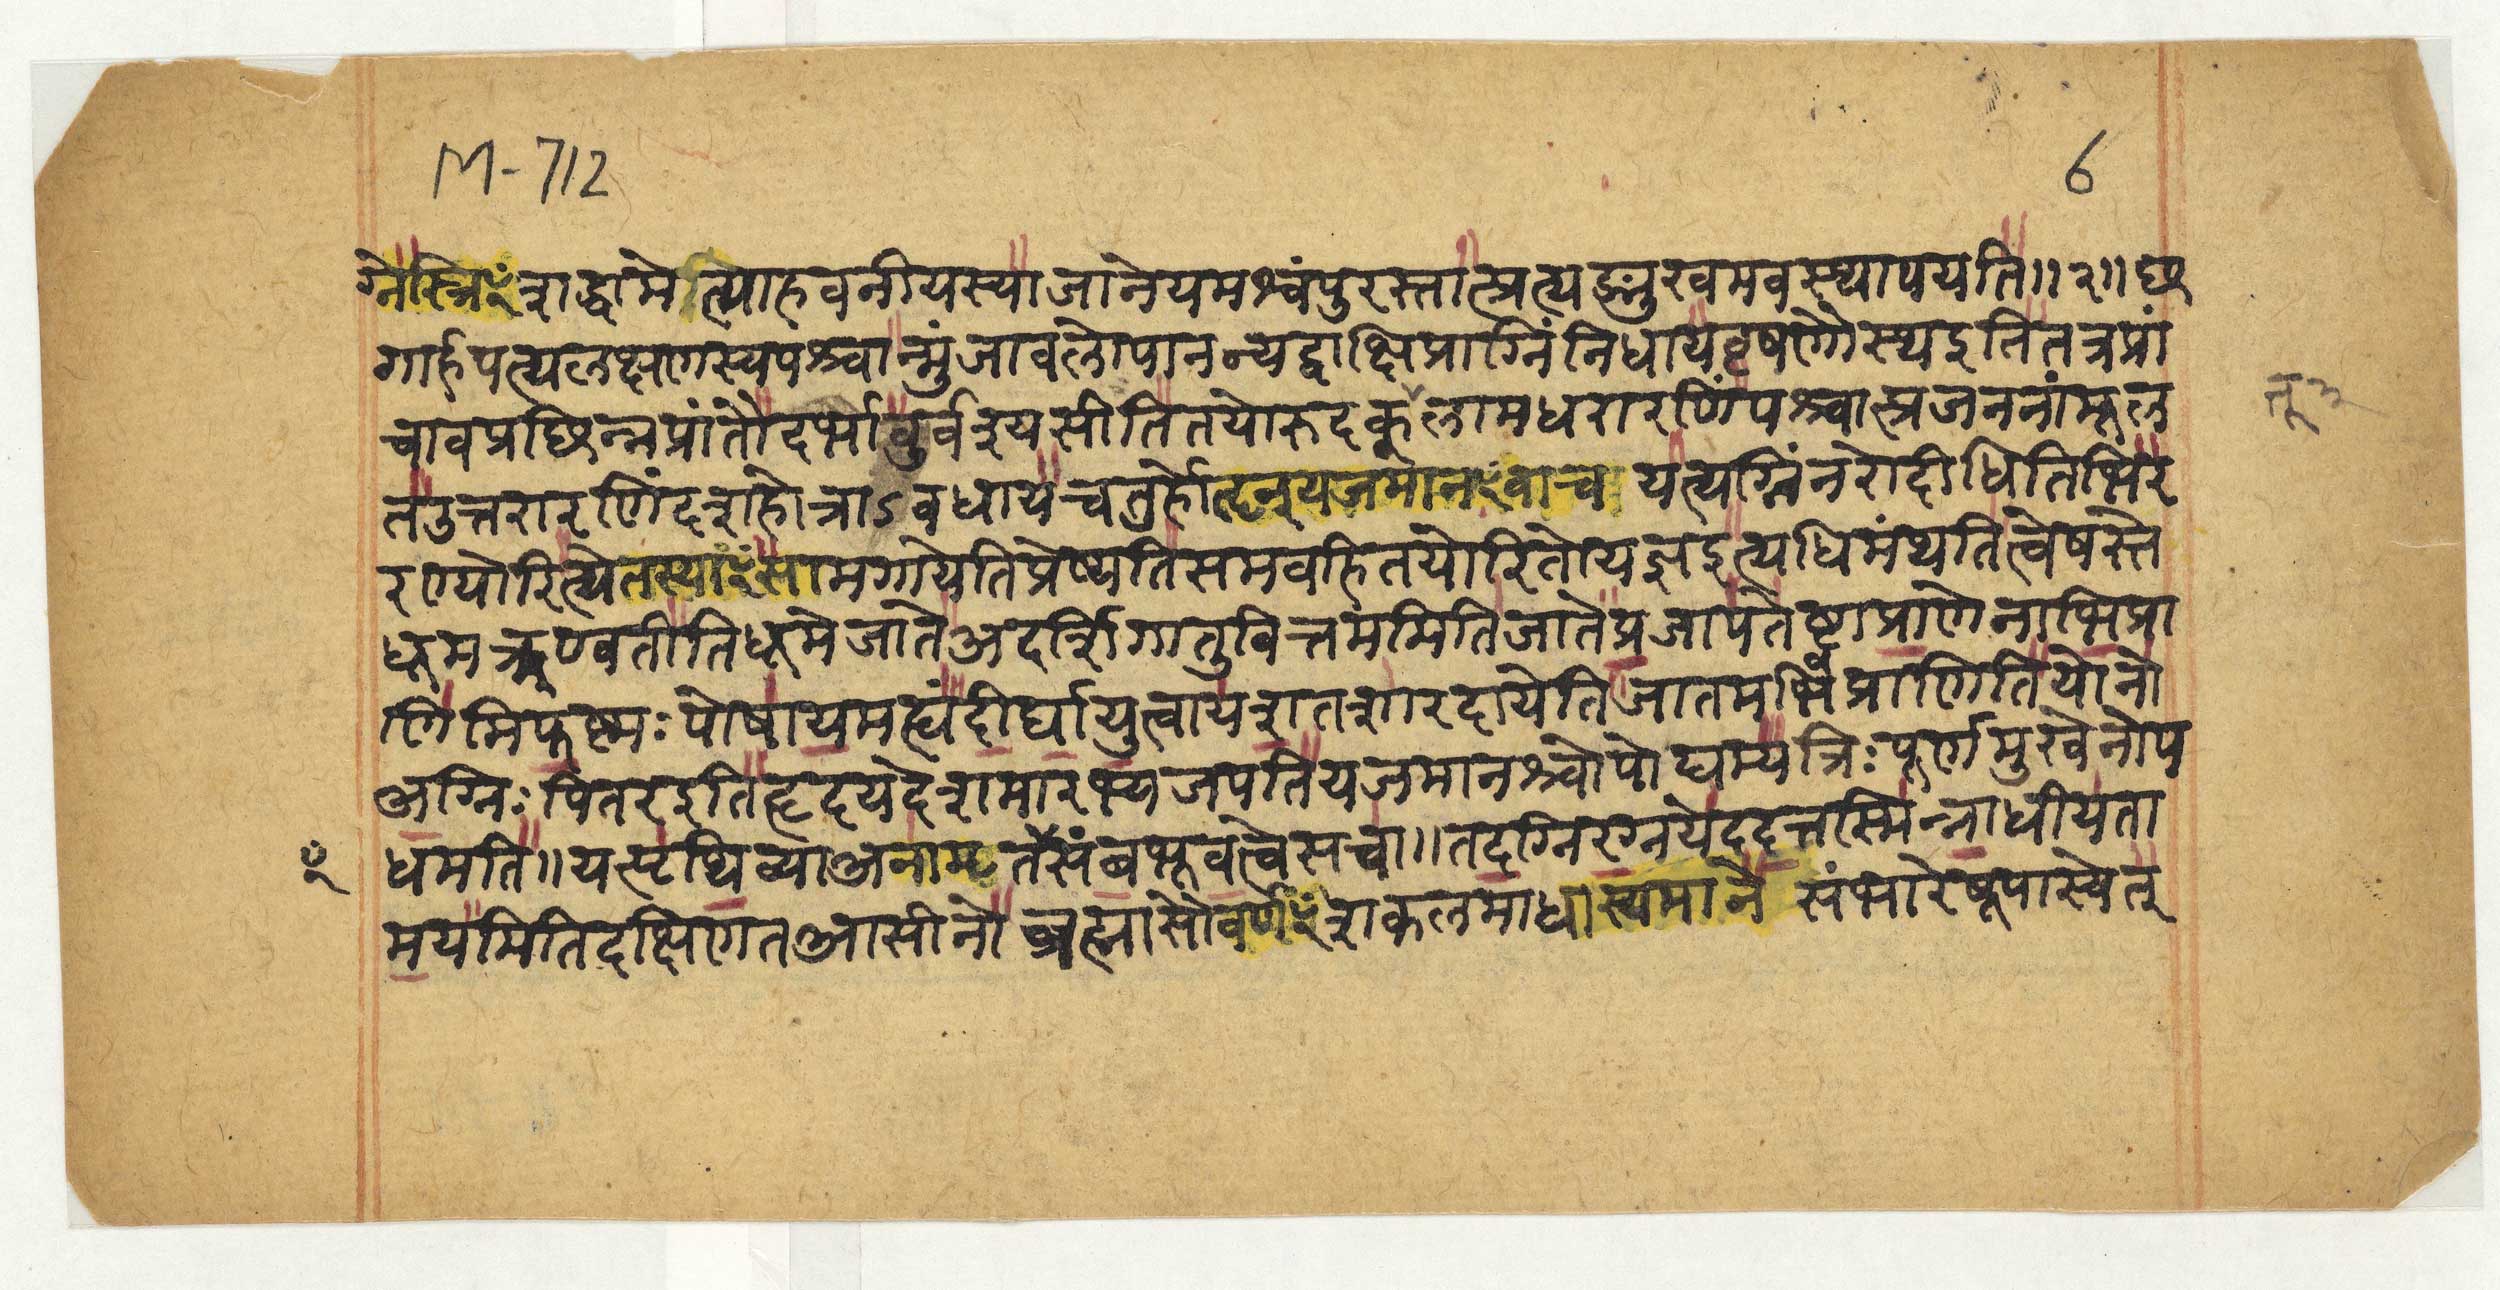 M-712
6
ग्नेस्त्रिꣳशद्धामेत्याहवनीयस्याजानेयमश्वंपुरस्तात्प्रत्यङ्मुखमवस्थापयति॥२॥छ
गार्हपत्यलक्षणस्यपश्चान्मुंजावलोपानन्यद्वाक्षिप्राग्निंनिधायवृषणौस्थइतितत्रप्रां
चावप्रछिन्नप्रांतौदर्भावुर्वश्यसीतितयोरुदकूलामधरारणिंपश्चात्प्रजननांमूल
तू
तउत्तरारणिंदशहोत्राऽवधायचतुर्होतृन्यजमानꣳवाचयत्यग्निंनरोदीधितिभिर
रण्योरित्येतस्याꣳसामगायेतिप्रेष्यतिसमवहितयोरितोयज्ञइत्यधिमंथतित्वेषस्ते
धूमऋण्वतीतिधूमेजातेअदर्शिगातुवित्तममितिजातेप्रजापतेष्ट्वाप्राणेनाभिप्रा
णिमिपूष्णः पोषायमह्यंदीर्घायुत्वायशतशारदायेतिजातमभिप्राणितियोनो
अग्निः पितरइतिहृदयदेशमारभ्यजपतियजमानश्चोपोद्यम्यत्रिः पूर्णमुखेनोप
धमति॥यत्पृथिव्याअनामृतꣳसंबभूवत्वेसचा॥तदग्निरग्नयेददत्तस्मिन्नाधीयता
मयमितिदक्षिणतआसीनो ब्रह्मासौवर्णꣳशकलमाधास्यमाने संभारेषूपास्येत्